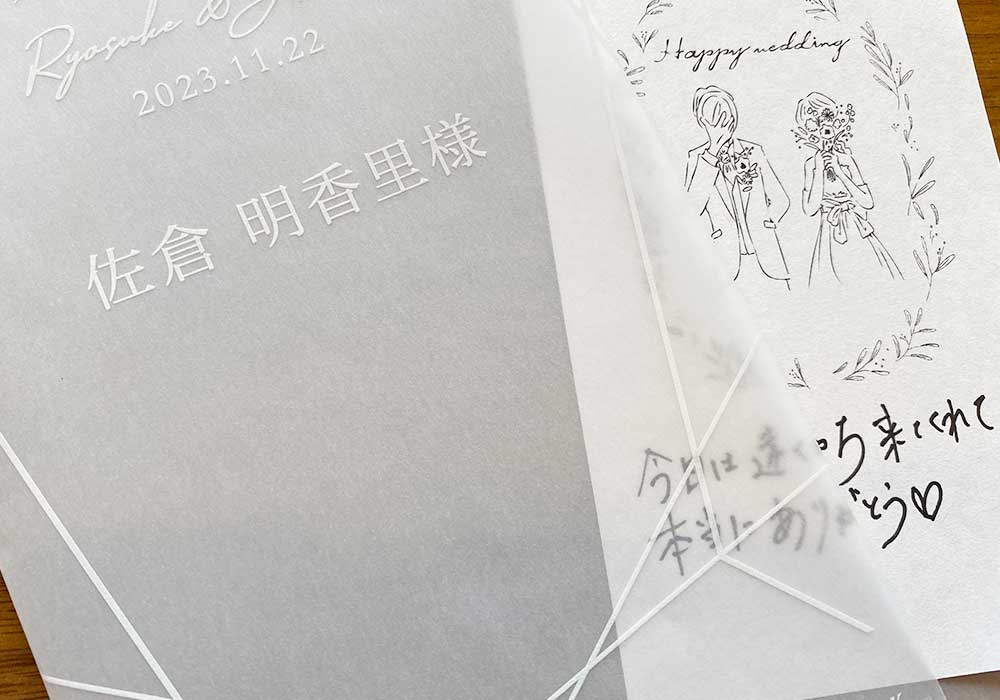 Ryosuke &
2023.11.22
佐倉 明香里様
Happy wedding
今日は遠くから来てくれて
本当にありがとう♡